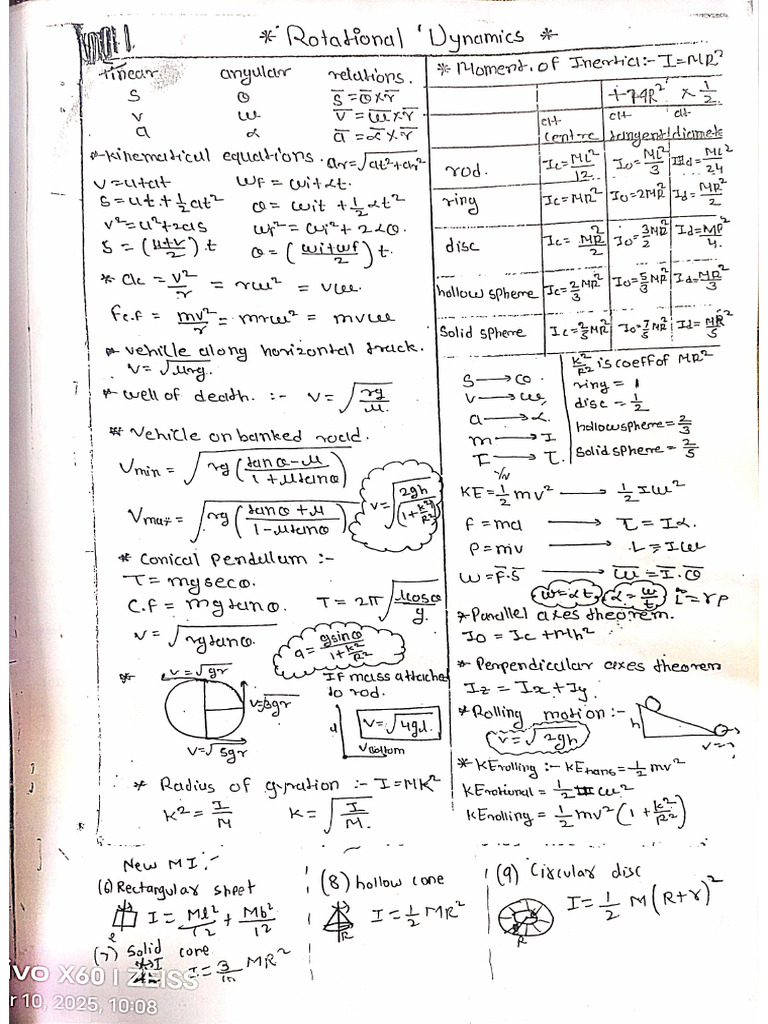 * Rotational Dynamics *
linear angular relations.
S θ S̅ = θ̅ × r̅
v ω V̅ = ω̅ × r̅
a α a̅ = α̅ × r̅
*-kinematical equations. ar=√at²+ar²
v=u+at ωf = ωit αt.
S = ut + ½ at² θ = ωit + ½ αt²
v² = u²+2as ωf² = ωi² + 2αθ.
S = (u+v/2) t θ = (ωi+ωf/2) t.
* ac = v²/r = rω² = vω.
Fc.f = mv²/r = mrω² = mvω
* vehicle along horizontal track.
v = √μrg.
* well of death. :- v = √rg/μ.
* Vehicle on banked road.
Vmin = √rg (tanθ-μ / 1+μtanθ)
Vmax = √rg (tanθ+μ / 1-μtanθ)
v = √2gh / 1+k²/R²
* Conical pendulum :-
T = mgsecθ.
C.f = mgtanθ. T = 2π √lcosθ/g.
v = √rgtanθ.
a = gsinθ / 1+k²/R²
* v=√gr
v=√3gr
v=√5gr
If mass attached
to rod.
v=√4gl.
VBottom
* Radius of gyration :- I=MK²
K² = I/M K = √I/M.
* Moment. of Inertia:- I=MR²
+MR² × ½
alt centre alt tangent alt diamete
rod. Ic=ML²/12 Io=ML²/3 Id=ML²/24
ring Ic=MR² Io=2MR² Id=MR²/2
disc Ic=MR²/2 Io=3/2 MR² Id=MR²/4.
hollow sphere Ic=2/3 MR² Io=5/3 MR² Id=MR²/3
Solid sphere Ic=2/5 MR² Io=7/5 MR² Id=MR²/5
K²/R² is coeff of MR²
ring = 1
disc = ½
hollowsphere = 2/3
Solid sphere = 2/5
S → θ.
v → ω.
a → α.
m → I
F → τ.
KE = ½ mv² → ½ Iω²
f = ma → τ = Iα.
P = mv → L = Iω
W = F̅.S̅ → W̅ = I̅.θ̅
ω=αt. α=ω/t L̅=rp
* Parallel axes theorem.
Io = Ic + Mh²
* Perpendicular axes theorem
Iz = Ix + Iy.
* Rolling motion :- h
v = √2gh v=?
* KErolling :- KEtrans = ½ mv²
KErotional = ½ I ω²
KErolling = ½ mv² (1 + K²/R²)
New MI :-
(6) Rectangular sheet
I = Ml²/12 + Mb²/12
l
(7) Solid cone
I I = 3/10 MR²
(8) hollow cone
I = ½ MR²
R
(9) Circular disc
I = 1/2 M(R+r)²
R
vivo X60 | ZEISS
r 10, 2025, 10:08